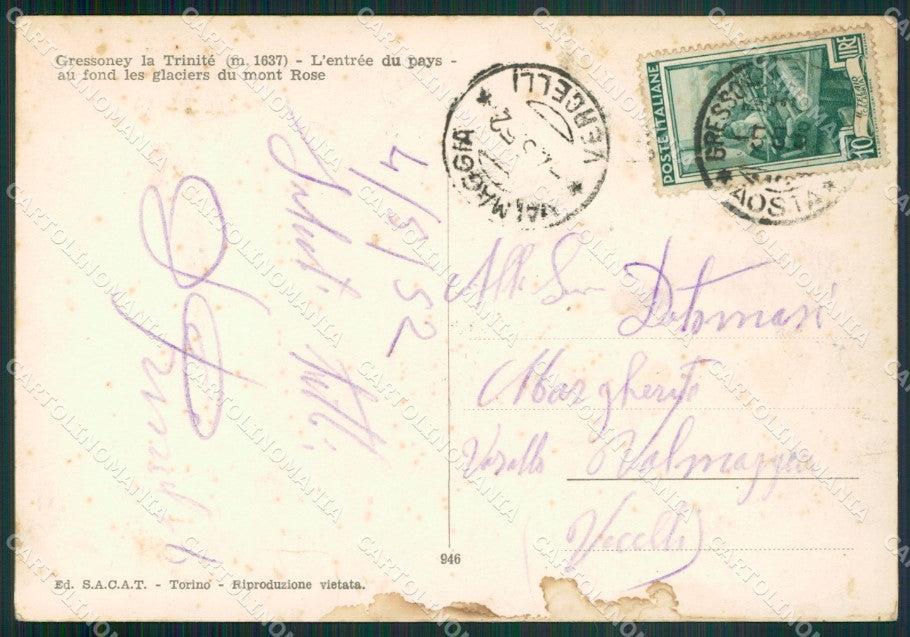 Gressoney la Trinité (m. 1637) - L'entrée du pays -
au fond les glaciers du mont Rose
VALMAGGIA * VERCELLI *
POSTE ITALIANE
LIRE
10
AOSTA
4/9/52
Saluti tutti
Alla
Detomasi
Margherita
Varallo Valmaggia
(Vercelli)
946
Ed. S.A.C.A.T. - Torino - Riproduzione vietata.
CARTOLINOMANIA